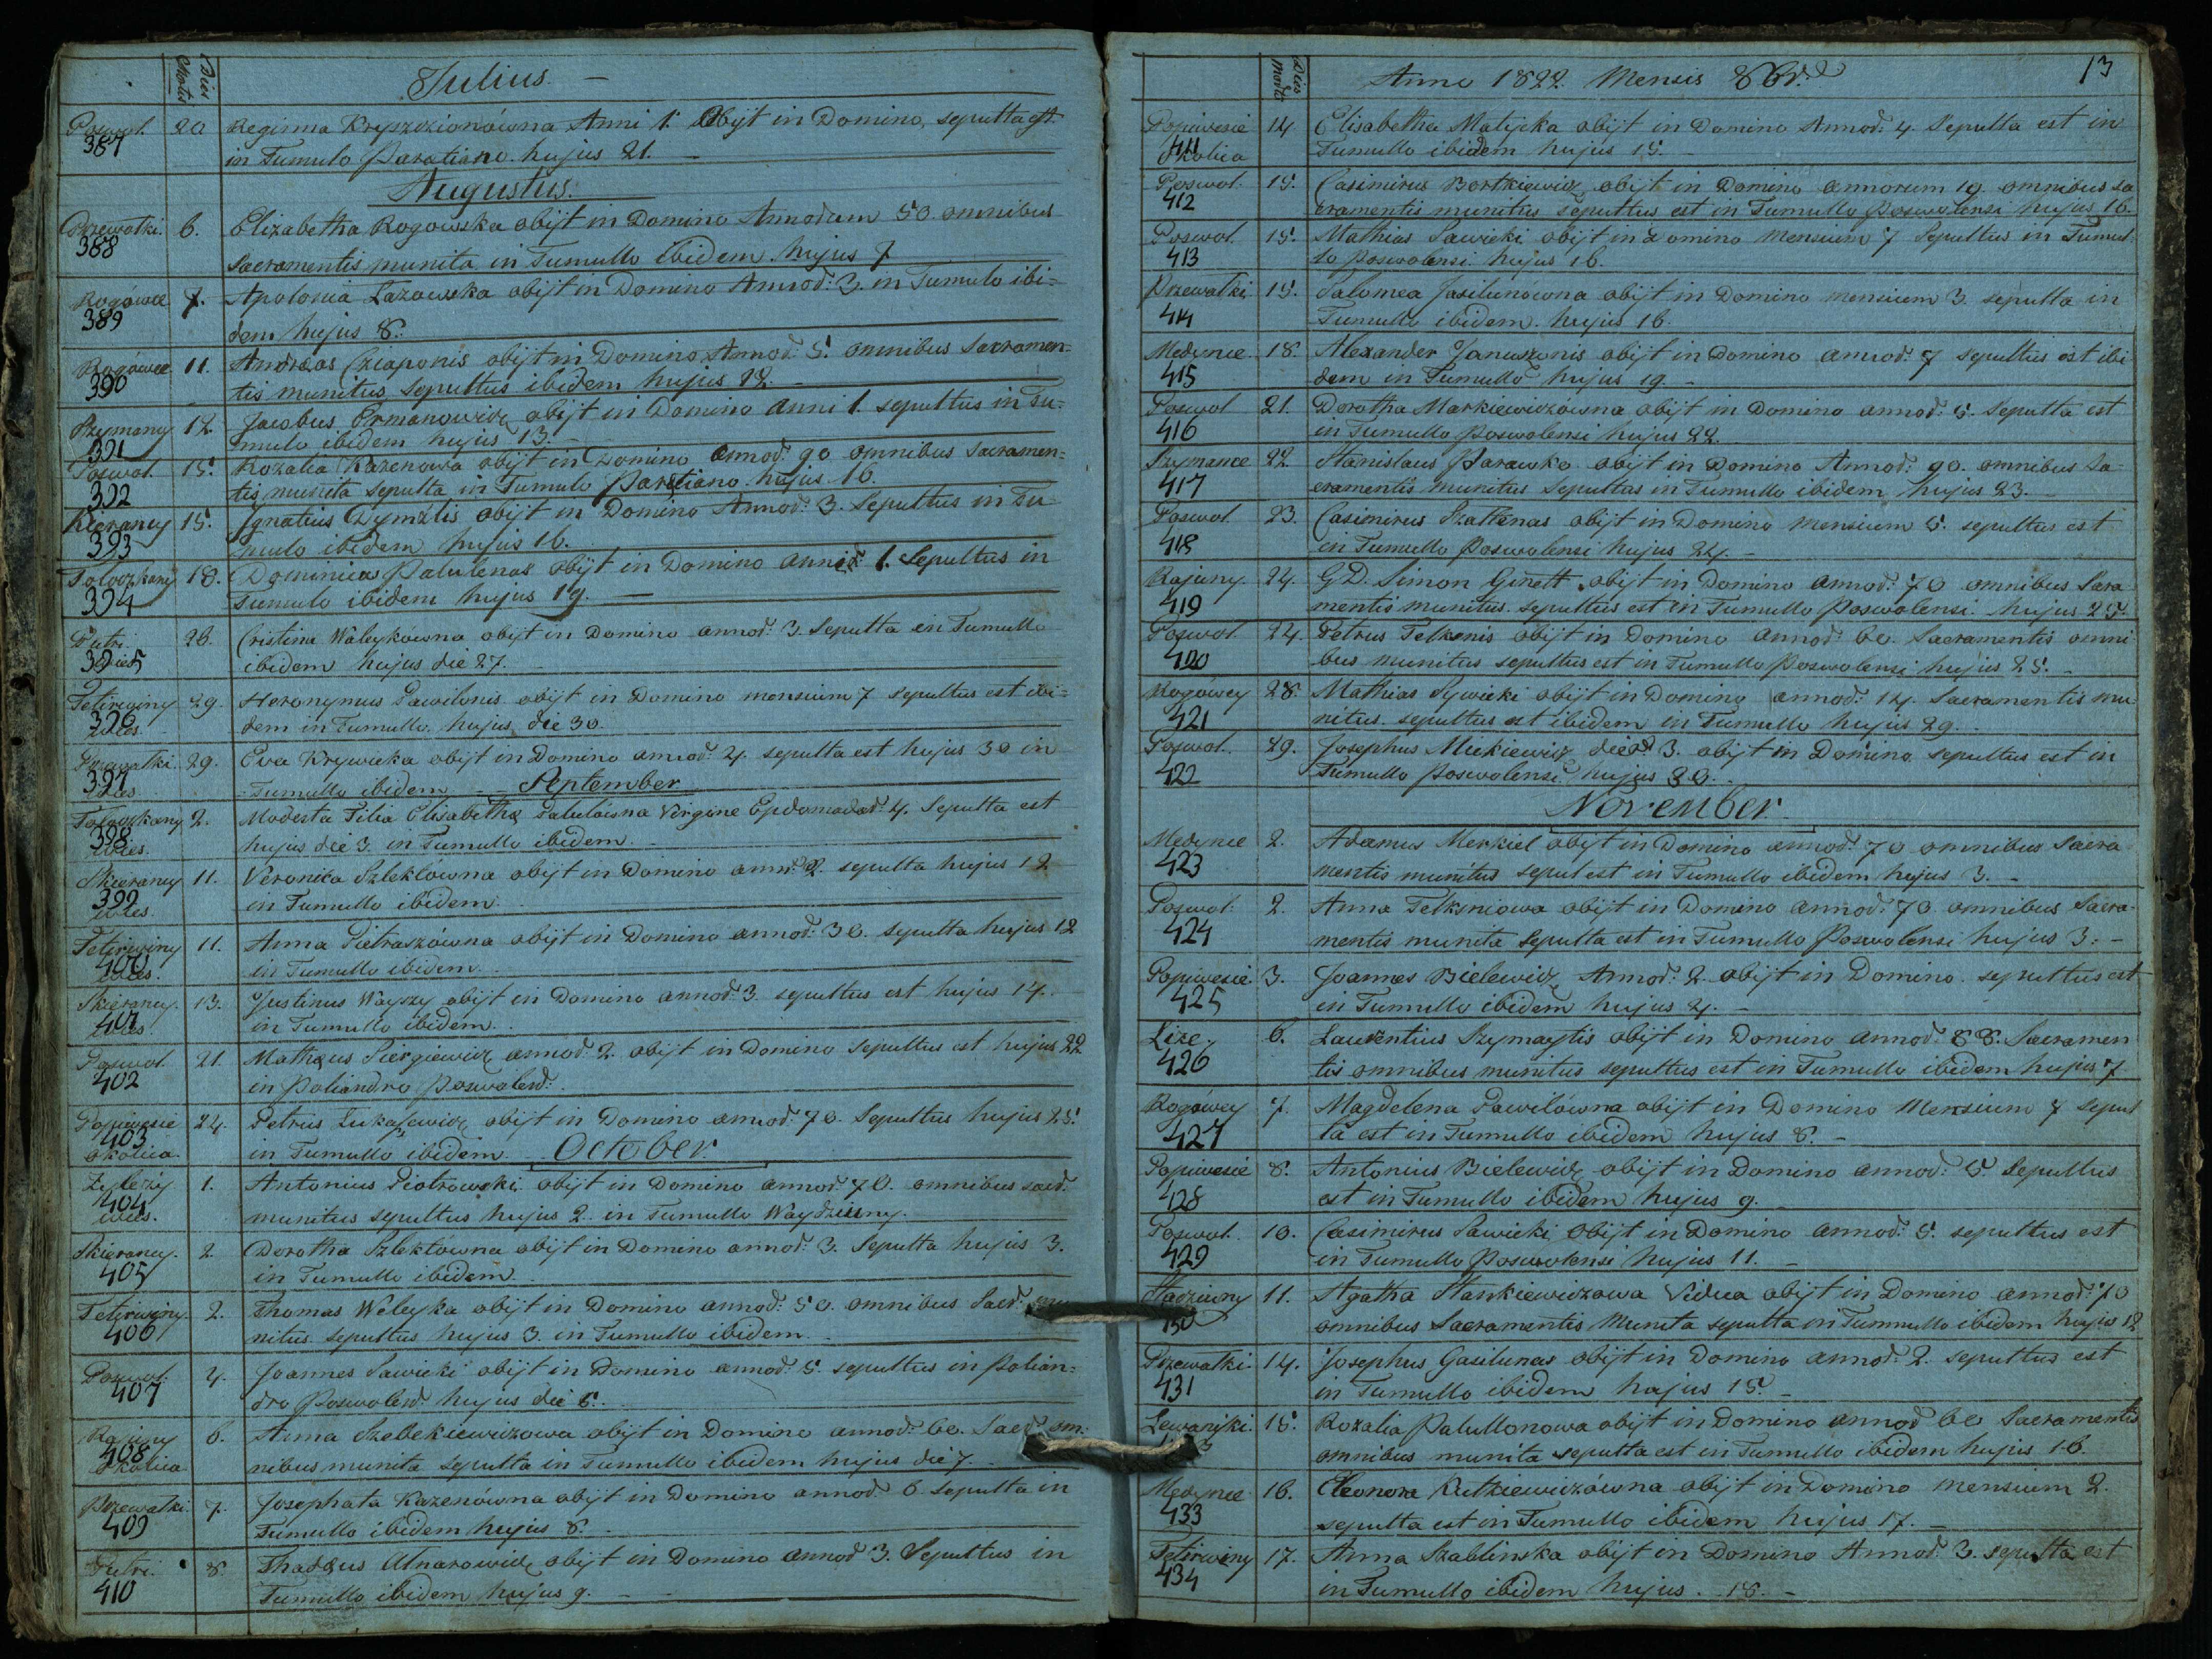 Dies Mortis
Julius
Poswol. 20 Reginna Kryszcionówna Anni 1. Obijt in Domino, sepulta est
387 in Tumulo Paratiano hujus 21.
Augustus.
Przewalki. 6. Elizabetha Rogowska obijt in Domino Annorum 50 omnibus
388 Sacramentis munita in Tumullo ibidem hujus 7
Rogówce 7. Apolonia Lazowska obijt in Domino Annod: 3. in Tumulo ibi=
389 dem hujus 8.
Rogówce 11. Andreas Cziaponis obijt in Domino Annod: 5. omnibus Sacramen=
390 tis munitus sepultus ibidem hujus 12.
Szymany 12. Jacobus Ormanowicz obijt in Domino anni 1. sepultus in Tu=
391 mulo ibidem hujus 13.
Poswol. 15. Rozalia Kazenowa obijt in Domino annod: 90 omnibus Sacramen=
392 tis munita sepulta in Tumulo Paratiano hujus 16.
Kierancy 15. Ignatius Dymżlis obijt in Domino Annod: 3. Sepultus in Tu
393 mulo ibidem hujus 16.
Toloczkany 18. Dominicus Palulenas obijt in Domino 1. Sepultus in
394 Tumulo ibidem hujus 19.
26. Cristina Waleykówna obijt in Domino annod: 3. Sepulta en Tumullo
395 ibidem hujus die 27.
Tetirwiny 29. Heronymus Pawilonis obijt in Domino mensium 7 sepultus est ibi=
396 wies dem in Tumullo hujus die 30.
Przewalki. 29. Eva Krywicka obijt in Domino annod: 4. sepulta est hujus 30 in
397 wies Tumullo ibidem September
Toloczkany 2. Modesta Filia Elisabethæ Virgine Epdomadar: 4. Sepulta est
398 wies. hujus die 3. in Tumullo ibidem.
Skierancy 11. Veronica Szleklówna obijt in Domino annod: 2. sepulta hujus 12
399 wies. in Tumullo ibidem.
Tetirwiny 11. Anna Pietraszówna obijt in Domino annod: 30. sepulta hujus 12
400 wies. in Tumullo ibidem.
Skierancy. 13. Justinus Wayszy obijt in Domino annod: 3. sepultus est hujus 14.
401 wies. in Tumullo ibidem.
Poswol. 21. Mathæus Piergiewicz annod: 2. obijt in Domino Sepultus est hujus 22
402 in Poliandro Poswolen:
Popiwesie 24. Petrus Lukasewicz obijt in Domino annod: 70. Sepultus hujus 25.
403 okolica. in Tumullo ibidem. October.
1. Antonius Piotrowski obijt in Domino annod: 70. omnibus sacr.
404 wies. munitus sepultus hujus 2. in Tumullo Waydziuny.
Skierancy. 2. Dorotha Szlektówna obijt in Domino annod: 3. Sepulta hujus 3.
405 in Tumullo ibidem.
Tetirwiny. 2. Thomas Weleyka obijt in Domino annod: 50. omnibus Sacr: mu
406 nitus sepultus hujus 3. in Tumullo ibidem.
Poswol. 4. Joannes Sawicki obijt in Domino annod: 5. sepultus in Polian=
407 dro Poswolen hujus die 5.
Rajuny 6. Anna Szebekiewiczowa obijt in Domino annod: 60. Sacr. om:
408 Okolica nibus munita sepulta in Tumullo ibidem hujus die 7.
Przewalki. 7. Josephata Kazenówna obijt in Domino annod: 6. sepulta in
409 Tumullo ibidem hujus 8.
8. Thadæus obijt in Domino annod 3. Sepultus in
410 Tumullo ibidem hujus 9.
13
Dies Mortis
Anno 1822. Mensis 8br.
Popiwesie 14. Elisabetha Matijcka obijt in Domino Annod: 4. Sepulta est in
411 Okolica Tumullo ibidem hujus 15.
Poswol. 15. Casimirus Bortkiewicz obijt in Domino annorum 19. omnibus sa
412 cramentis munitus sepultus est in Tumullo Poswolensi hujus 16.
Poswol. 15. Mathias Sawicki obijt in Domino mensium 7 Sepultus in Tumul
413 lo Poswolensi hujus 16.
Przewalki 15. Salomea Jasilunówna obijt in Domino mensium 3. sepulta in
414 Tumullo ibidem hujus 16.
Medynce. 18. Alexander Januszonis obijt in Domino annod: 7 sepultus est ibi
415 dem in Tumullo hujus 19.
Poswol 21. Dorotha Markiewiczówna obijt in Domino annod: 5. Sepulta est
416 in Tumullo Poswolensi hujus 22.
Szymance 22. Stanislaus Parawko obijt in Domino Annod: 90. omnibus Sa
417 cramentis munitus Sepultus in Tumullo ibidem hujus 23.
Poswol. 23. Casimirus Szatkenas obijt in Domino mensium 5. sepultus est
418 in Tumullo Poswolensi hujus 24.
Rajuny. 24. G.D. Simon Ginett obijt in Domino annod: 70 omnibus Sacra
419 mentis munitus sepultus est in Tumullo Poswolensi hujus 25.
Poswol. 24. Petrus Telksnis obijt in Domino annod: 60. Sacramentis omni
420 bus munitus sepultus est in Tumullo Poswolensi hujus 25.
Rogówcy 28. Mathias Sywicki obijt in Domino annod: 14. Sacramentis mu
421 nitus. sepultus est ibidem in Tumullo hujus 29.
Poswol. 29. Josephus Mickiewicz dierd: 3. obijt in Domino sepultus est in
422 Tumullo Poswolensi hujus 30.
November
Medynce 2. Adamus Merkiel obijt in Domino annod: 70 omnibus Sacra
423 mentis munitus sepul est in Tumullo ibidem hujus 3.
Poswol: 2. Anna Telksniowa obijt in Domino annod: 70. omnibus Sacra
424 mentis munita Sepulta est in Tumullo Poswolensi hujus 3.
Popiwesie 3. Joannes Bielewicz Annod: 2. obijt in Domino sepultus est
425 in Tumullo ibidem hujus 4.
6. Laurentius Szymaytis obijt in Domino annod: 88. Sacramen
426 tis omnibus munitus sepultus est in Tumullo ibidem hujus 7
Rogówcy 7. Magdelena Pawilówna obijt in Domino Mensium 7 sepul
427 ta est in Tumullo ibidem hujus 8.
Popiwesie 8. Antonius Bielewicz obijt in Domino annod: 5. Sepultus
428 est in Tumullo ibidem hujus 9.
Poswol. 10. Casimirus Sawicki obijt in Domino annod: 5. sepultus est
429 in Tumullo Poswolensi hujus 11.
11. Agatha Stankiewiczowa Vidua obijt in Domino annod: 70
omnibus Sacramentis Munita sepulta in Tummullo ibidem hujus 12
Przewalki. 14. Josephus Gasilunas obijt in Domino annod: 2. sepultus est
431 in Tumullo ibidem hujus 15.
15. Rozalia Palullonowa obijt in Domino annod 60 Sacramentis
omnibus munita sepulta est in Tumullo ibidem hujus 16.
Medynce 16. Eleonora Rutkiewiczówna obijt in Domino mensium 2.
433 sepulta est in Tumullo ibidem hujus 17.
Tetirwiny 17. Anna Szablinska obijt in Domino Annod: 3. sepulta est
434 in Tumullo ibidem hujus. 18.